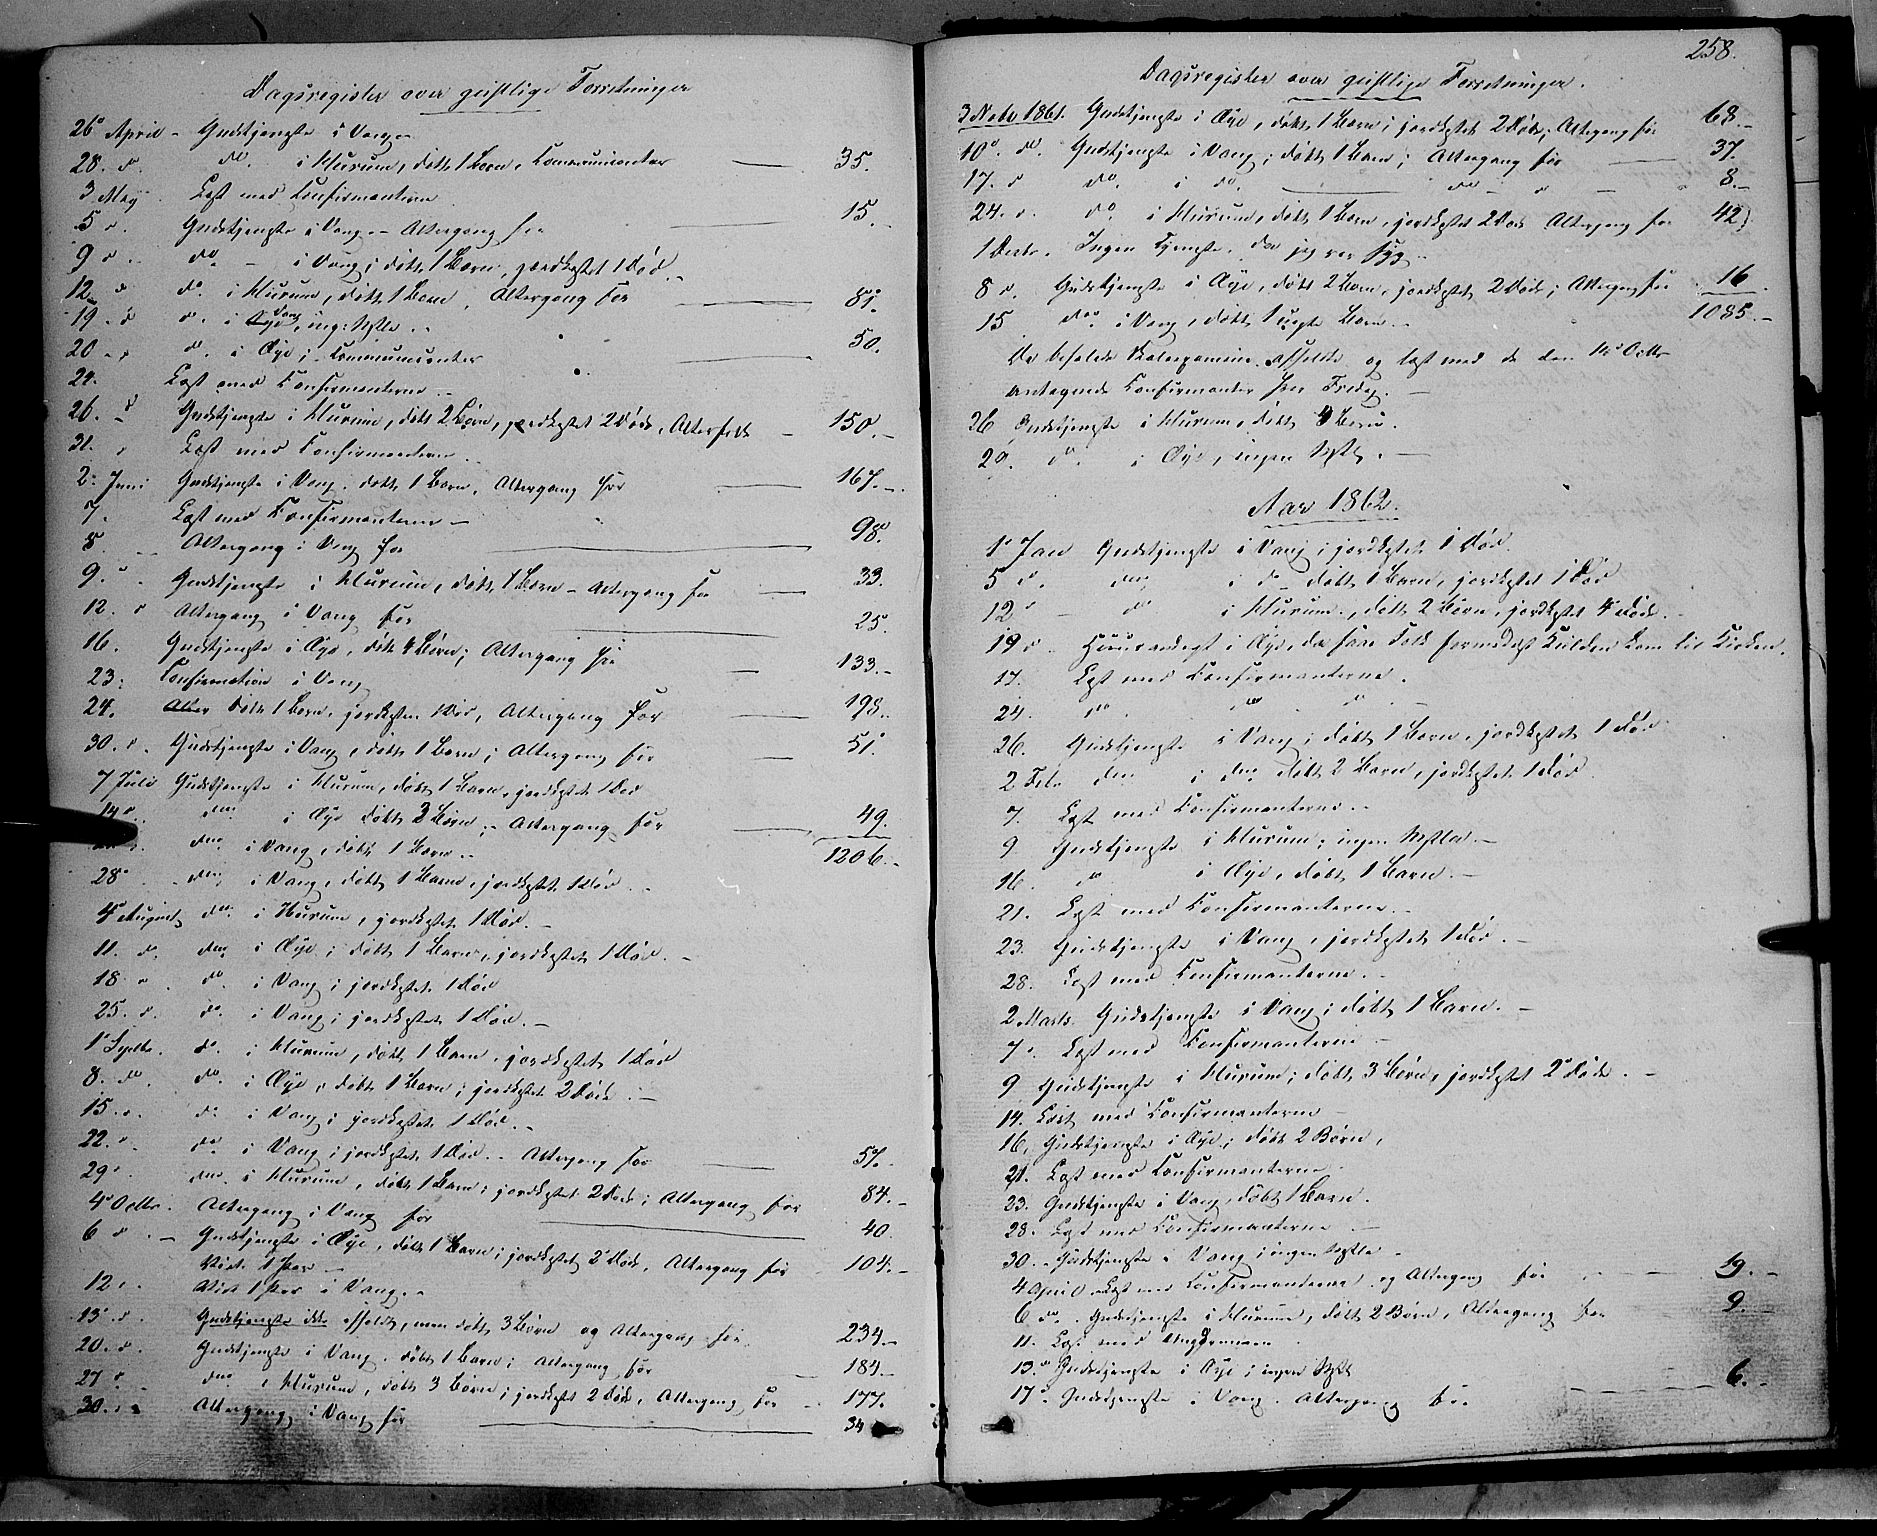 Dagsregister over geistlige Forretninger
26 April - Gudstjeneste i Vang -
28. d. do. i Hurum, døbt 1 Barn, Communicanter 35.
3 May. Læst med Confirmanterne
5 d. Gudstjeneste i Vang - Altergang for 15.
9 d. do. - i Vang; døbt 1 Barn, jordkastet 1 Død.
12 d. do. i Hurum, døbt 1 Barn, Altergang for 81.
19. d d. i Vang, ing:
20 d. i Øye; Communicanter 50.
24. Læst med Confirmanterne
26. d Gudstjeneste i Hurum, døbt 2 Børn, jordkastet 2 Døde, 150.-
31. d Læst med Confirmanterne
2. Juni Gudstjeneste i Vang, døbt 1 Barn, Altergang for 167.-
7. Læst med Confirmanterne -
8. Altergang i Vang for 98.
9. Gudstjeneste i Hurum, døbt 1 Barn - Altergang for 33.
12. d Altergang i Vang for 25.
16. Gudstjeneste i Øye, døbt 4 Børn; Altergang for 133.-
23. Confirmation i Vang
24. døbt 1 Barn, jordkastet 1 Død, Altergang for 198.
30. d. Gudstjeneste i Vang, døbt 1 Barn; Altergang for 51.
7 Juli Gudstjeneste i Hurum, døbt 1 Barn, jordkastet 1 Død
14 do. i Øye døbt 3 Børn; - Altergang for 49.
do. i Vang, døbt 1 Barn. 1206.-
28 do. i Vang, døbt 1 Barn, jordkastet 1 Død.
4 August do. i Hurum, jordkastet 1 Død. -
11. d. do. i Øye; døbt 1 Barn, jordkastet 1 Død. -
18 d. do. i Vang; jordkastet 1 Død
25. d. do. i Vang; jordkastet 1 Død. -
1 Septbr. do. i Hurum, døbt 1 Barn, jordkastet 1 Død
8. do. do. i Øye, døbt 1 Barn; jordkastet 2 Døde. -
15. d. do. i Vang; jordkastet 1 Død. -
22. d. do. i Vang; jordkastet 1 Død. - Altergang for 57.-
29. do. i Hurum, døbt 1 Barn; jordkastet 2 Døde; Altergang for 84.-
4 Octbr. Altergang i Vang for 40.
6 d. - Gudstjeneste i Øye, døbt 1 Barn; jordkastet 2 Døde, Altergang for 104.-
Viet 1 Par -
12 d. Viet 1 Par i Vang. -
13 d. Gudstjeneste ikke afholdt, men døbt 3 Børn og Altergang for 234-
20. d. Gudstjeneste i Vang, døbt 1 Barn; Altergang for 184-
27 d. do. i Hurum, døbt 3 Børn; jordkastet 2 Døde, Altergang for 177.
30. Altergang i Vang for 34
258.
Dagsregister over geistlige Forretninger.
3 Novbr 1861. Gudstjeneste i Øye, døbt 1 Barn; jordkastet 2 Døde; Altergang for 68.-
10. d. Gudstjeneste i Vang; døbt 1 Barn; Altergang for 37.
17. d do. i do. do - 8.-
24. d. do. i Hurum, døbt 1 Barn, jordkastet 2 Døde Altergang for 42)
1 Decbr. Ingen Tjeneste, da jeg var syg. -
8 d. Gudstjeneste i Øye, døbt 2 Børn, jordkastet 2 Døde; Altergang for 16.
15 do. i Vang, døbt 1 uægte Barn. - 1085.-
De befalede Skoleexamina afholdte og læst med de den 14 Octbr
antagne Confirmanter hver Fredag. -
26 Gudstjeneste i Hurum, døbt 4 Børn.
29. do. i Øye, ingen
Aar 1862.
1 Jan Gudstjeneste i Vang; jordkastet 1 Død.
5 d. do. i do døbt 1 Barn, jordkastet 1 Død
12 do i Hurum, døbt 2 Børn, jordkastet 4 Døde. -
19 d i Øye, da faae Folk formedelst Kulden kom til Kirken.
17. Læst med Confirmanterne.
24. do. do d
26. Gudstjeneste i Vang; døbt 1 Barn, jordkastet 1 Død
2 Febr do. i do. døbt 2 Børn, jordkastet 1 Død.
7. Læst med Confirmanterne. -
9 Gudstjeneste i Hurum; ingen
16. do i Øye, døbt 1 Barn. -
21. Læst med Confirmanterne. -
23. Gudstjeneste i Vang, jordkastet 1 Død. -
28. Læst med Confirmanterne. -
2 Marts Gudstjeneste i Vang; døbt 1 Barn. -
7. Læst med Confirmanterne -
9 Gudstjeneste i Hurum; døbt 3 Børn, jordkastet 2 Døde. -
14. Læst med Confirmanterne -
16, Gudstjeneste i Øye; døbt 2 Børn,
21. Læst med Confirmanterne -
23. Gudstjeneste i Vang, døbt 1 Barn.
28. Læst med Confirmanterne. -
30. Gudstjeneste i Vang; ingen
4 April Læst med Confirmanterne og Altergang for 19.-
6 do. Gudstjeneste i Hurum, døbt 2 Børn, Altergang for 9.-
11. Læst med Ungdommen
13. Gudstjeneste i Øye; ingen
17. Gudstjeneste i Vang. Altergang for 6.-